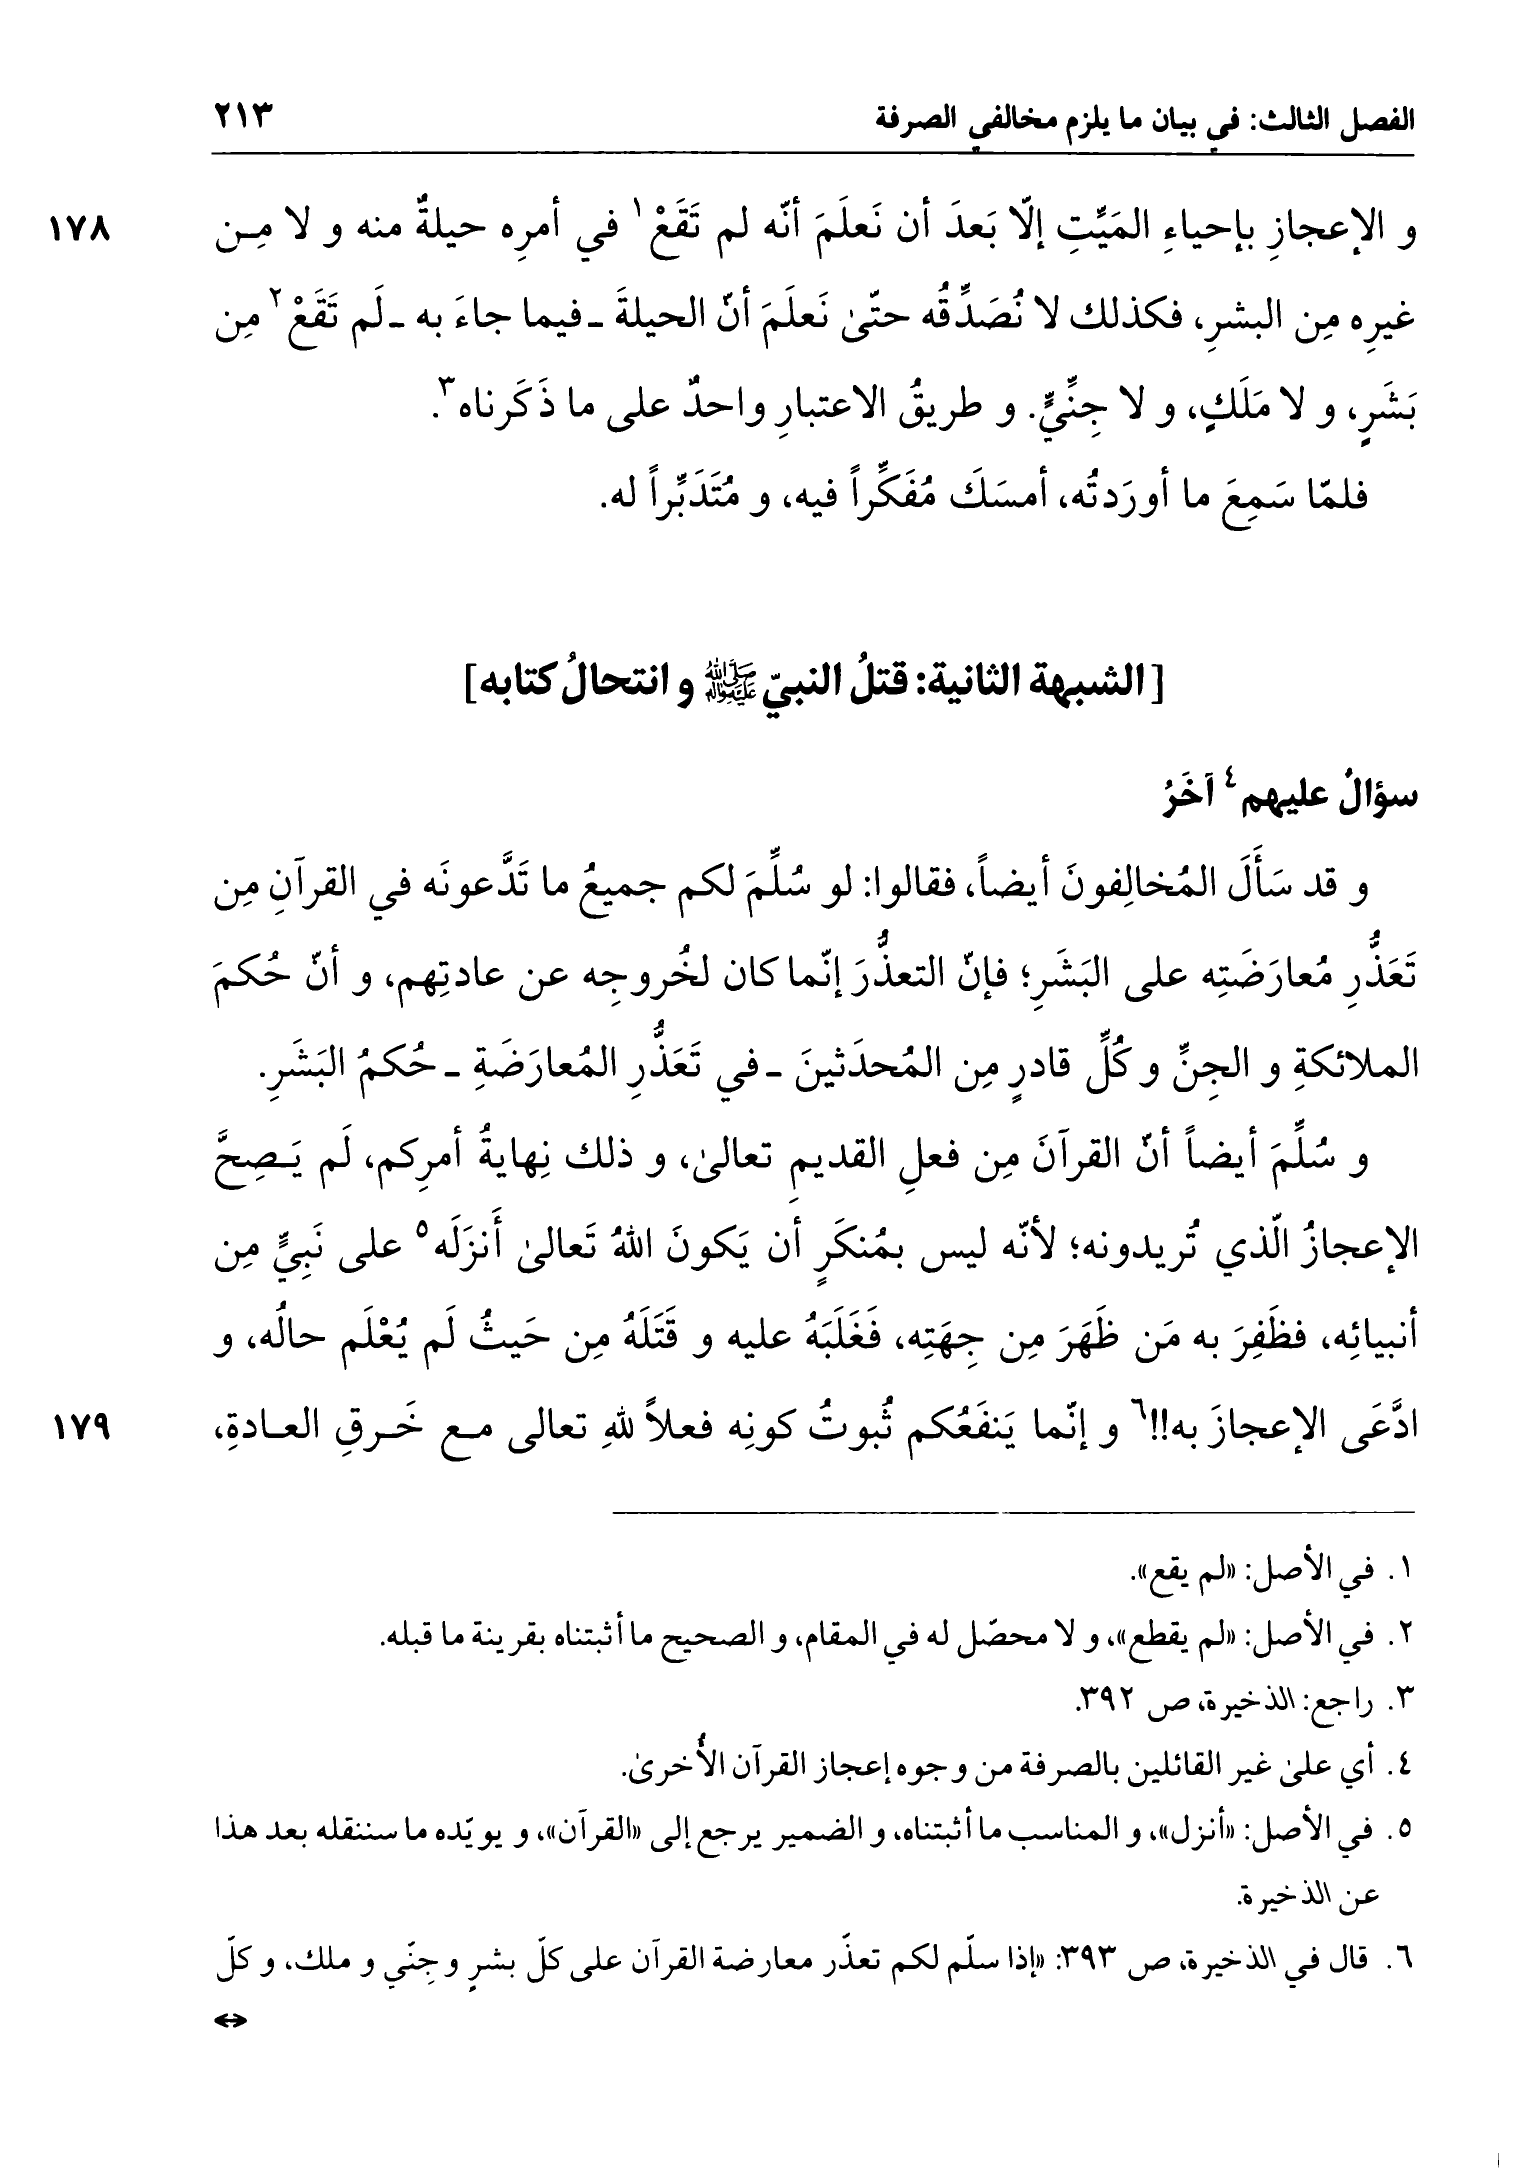 الفصل الثالث: في بيان ما يلزم مخالفي الصرفة ٢١٣
و الإعجازِ بإحياءِ المَيِّتِ إلّا بَعدَ أن نَعلَمَ أنّه لم تَقَعْ١ في أمرِه حيلةٌ منه و لا مِـن ١٧٨
غيرِه مِن البشرِ، فكذلك لا نُصَدِّقُه حتّىٰ نَعلَمَ أنّ الحيلةَ ـ فيما جاءَ به ـ لَم تَقَعْ٢ مِن
بَشَرٍ، و لا مَلَكٍ، و لا جِنِّيٍّ. و طريقُ الاعتبارِ واحدٌ على ما ذَكَرناه٣.
فلمّا سَمِعَ ما أورَدتُه، أمسَكَ مُفَكِّراً فيه، و مُتَدَبِّراً له.
[الشبهة الثانية: قتلُ النبيّ ﷺ و انتحالُ كتابه]
سؤالٌ عليهم٤ آخَرُ
و قد سَأَلَ المُخالِفونَ أيضاً، فقالوا: لو سُلِّمَ لكم جميعُ ما تَدَّعونَه في القرآنِ مِن
تَعَذُّرِ مُعارَضَتِه على البَشَرِ؛ فإنّ التعذُّرَ إنّما كان لخُروجِه عن عادتِهم، و أنّ حُكمَ
الملائكةِ و الجِنِّ و كُلِّ قادرٍ مِن المُحدَثينَ ـ في تَعَذُّرِ المُعارَضَةِ ـ حُكمُ البَشَرِ.
و سُلِّمَ أيضاً أنّ القرآنَ مِن فعلِ القديمِ تعالىٰ، و ذلك نِهايةُ أمرِكم، لَم يَـصِحَّ
الإعجازُ الّذي تُريدونه؛ لأنّه ليس بمُنكَرٍ أن يَكونَ اللهُ تَعالىٰ أَنزَلَه٥ على نَبِيٍّ مِن
أنبيائِه، فظَفِرَ به مَن ظَهَرَ مِن جِهَتِه، فَغَلَبَهُ عليه و قَتَلَهُ مِن حَيثُ لَم يُعْلَم حالُه، و
ادَّعَى الإعجازَ به!!٦ و إنّما يَنفَعُكم ثُبوتُ كونِه فعلاً للهِ تعالى مـع خَـرقِ العـادةِ، ١٧٩
١. في الأصل: «لم يقع».
٢. في الأصل: «لم يقطع»، و لا محصّل له في المقام، و الصحيح ما أثبتناه بقرينة ما قبله.
٣. راجع: الذخيرة، ص ٣٩٢.
٤. أي علىٰ غير القائلين بالصرفة من وجوه إعجاز القرآن الأُخرىٰ.
٥. في الأصل: «أنزل»، و المناسب ما أثبتناه، و الضمير يرجع إلى «القرآن»، و يويّده ما سننقله بعد هذا
عن الذخيرة.
٦. قال في الذخيرة، ص ٣٩٣: «إذا سلّم لكم تعذّر معارضة القرآن على كلّ بشرٍ و جِنّي و ملك، و كلّ
↔